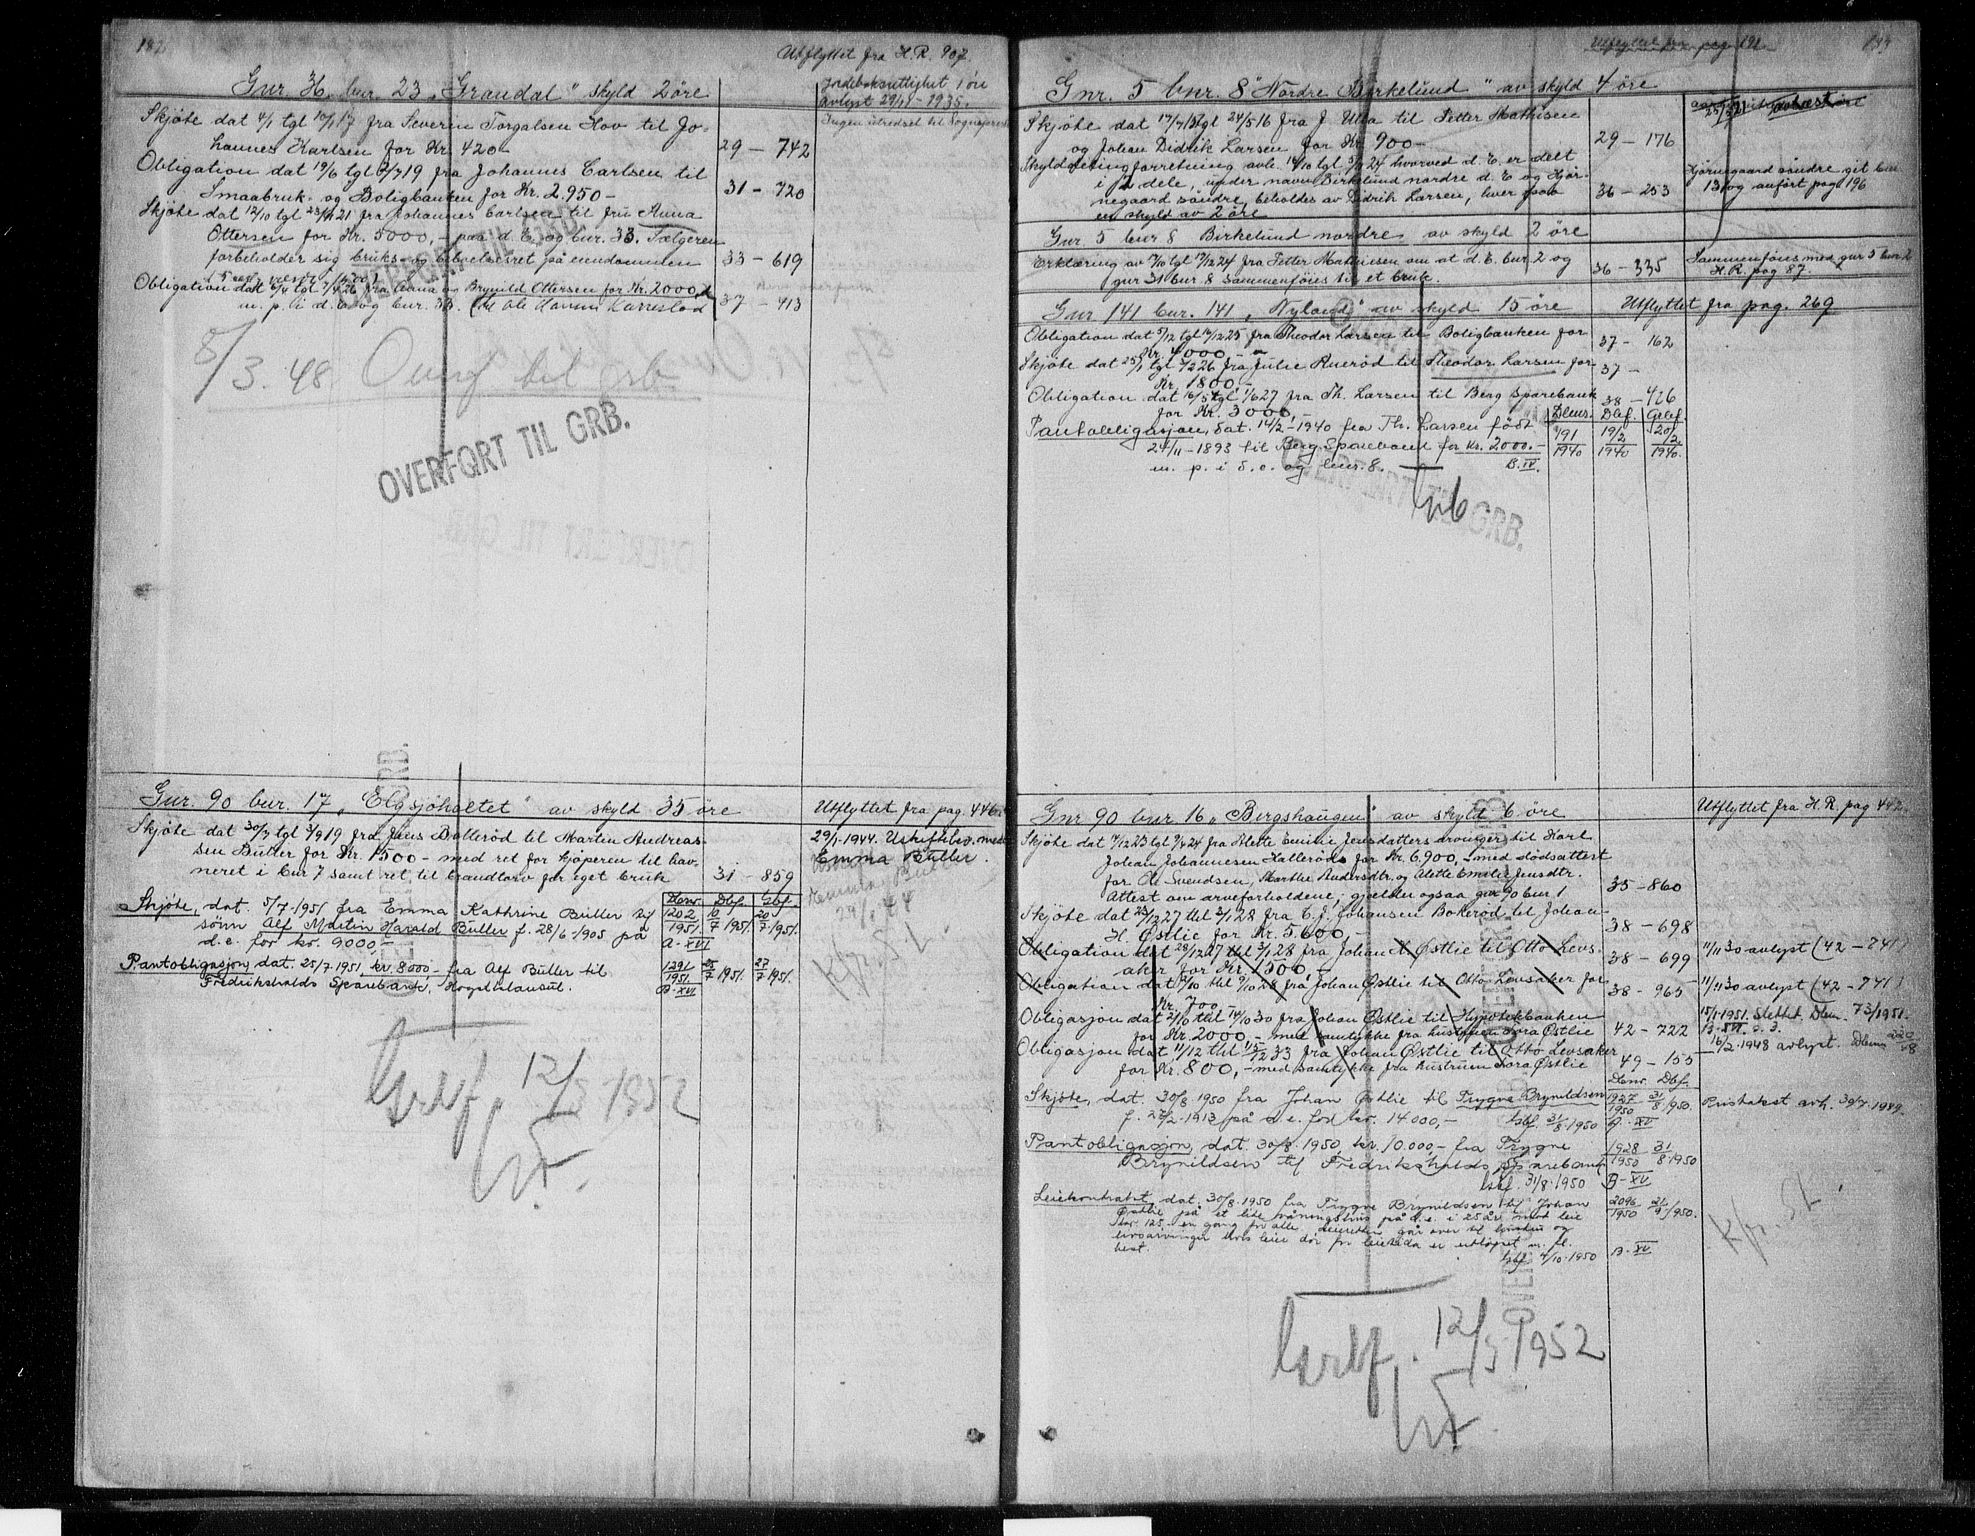 Utflyttet fra H.R. 907.
Gnr. 36 bnr. 23 „Grandal" skyld 2 øre
Indløsknuttighet 1 øre
avlyst 29/11 - 1935.
Skjøte dat 4/1 tgl 10/1 17 fra Severin Torgalsen Hov til Jo-
hannes Karlsen for Kr. 420-
29 - 742
Obligation dat 19/6 tgl 2/7 19 fra Johannes Carlsen til
Smaabruk- og Boligbanken for Kr. 2.950-
31 - 720
Skjøte dat 12/10 tgl 23/11 21 fra Johannes Carlsen til fru Anna
Ottersen for Kr. 5000,- paa d. E. og bnr. 33. Sælgeren
forbeholder sig bruks- og beboelsesret på eiendommen
33 - 619
Obligation dat 6/4 tgl 7/4 26 fra Anna og Brynild Ottersen for Kr. 2000,-
m. p. i d. E. og bnr. 33. til Ole Hannes Karrestad
37 - 413
8/3. 48 Overf til grb
OVERFØRT TIL GRB.
Gnr. 90 bnr. 17 „Elgsjøholtet" av skyld 35 øre
Utflyttet fra pag. 446
Skjøte dat 30/7 tgl 3/9 19 fra Jens Ballerød til Martin Andreas-
sen Buller for Kr. 1500- med ret for kjøperen til hav-
neret i bnr 7 samt ret til brandtorv for eget bruk
31 - 859
29/1-1944. Uskiftebev. med
Emma Buller.
Skjøte, dat. 5/7-1951 fra Emma Kathrine Buller til
sønn Alf Martin Harald Buller f. 28/6 1905 på
d.e. for kr. 9000,-
Dlnr. Dbf. Gbf.
202/1951 10/7 1951. 20/7 1951.
A-XVI
Pantobligasjon, dat. 25/7 1951, kr. 8000,- fra Alf Buller til
Fredrikshalds Sparebank. Høysteklausul.
1291/1951. 25/7 1951. 27/7 1951.
B-XVI
Grbf. 12/3 1952
Utflyttet fra pag 191
Gnr. 5 bnr. 8 „Nordre Birkelund" av skyld 4 øre
Skjøte dat 17/7 15 tgl 24/5 16 fra J. Ulla til Petter Mathisen
og Johan Didrik Larsen for Kr 900-
29 - 176
Skylddelingforretning avh. 14/10 tgl 5/11 24 hvorved d. E. er delt
i 2 dele, under navn Birkelund nordre d. E og Hjør-
negaard søndre, beholdes av Didrik Larsen, hver paa
en skyld av 2 øre
36 - 253
Hjørnegaard søndre git bnr
13 og anført pag. 196
Gnr. 5 bnr 8 Birkelund nordre av skyld 2 øre
Erklæring av 7/10 tgl 12/12 24 fra Petter Mathiesen om at d. E. bnr. 2 og
gnr 31 bnr. 8 sammenføies til et bruk.
36 - 335
Sammenføies med gnr 5 bnr 2
H.R. pag 87.
Gnr 141 bnr. 141, „Nyland" av skyld 15 øre
Utflyttet fra pag. 269
Obligation dat 5/12 tgl 16/12 25 fra Theodor Larsen til Boligbanken for
Kr. 4000,-
37 - 162
Skjøte dat 25/1 tgl 1/2 26 fra Julie Anerød til Theodor Larsen for
Kr. 1800,-
37 -
Obligation dat 16/5 tgl 1/6 27 fra Th. Larsen til Berg Sparebank
for Kr. 3000,-
38 - 426
Pantobligasjon, dat. 14/2 - 1940 fra Th. Larsen født
24/11 - 1893 til Berg Sparebank for kr. 2000.-
m. p. i d. e. og bnr. 8.
B.IV.
Dlnr. Dbf. Gbf.
191/1940 19/2 1940 20/2 1940.
OVERFØRT TIL GRB.
Gnr 90 bnr 16 „Bergshaugen" av skyld 6 øre
Utflyttet fra H.R. pag 442
Skjøte dat 14/12 23 tgl 9/4 24 fra Alette Emilie Jensdatters arvinger til Karl
Johan Johannesen Kallerøds for Kr. 6.900,- med dødsattest
for Ole Svendsen, Marthe Andersdtr. og Alette Emilie Jensdtr.
Attest om arveforholdene; gjelder ogsaa gnr 90 bnr 1
35 - 860
Skjøte dat 23/12 27 thl 3/1 28 fra C. J. Johansen Bakerød til Johan
H. Østlie for Kr. 5.600,-
38 - 698
Obligation dat 29/12 27 thl 3/1 28 fra Johan H. Østlie til Otto Levs-
aker for Kr. 1500,-
38 - 699
11/11 30 avlyst (42 - 741)
Obligation dat 8/10 thl 9/10 28 fra Johan Østlie til Otto Levsaker for
Kr. 700
38 - 965
11/11 30 avlyst (42 - 741)
Obligasjon dat 2/10 thl 14/10 30 fra Johan Østlie til Hypotekbanken
for Kr. 2000.- med samtykke fra hustruen Lora Østlie
42 - 722
15/1-1951. Slettet. Dlnr. 73/1951.
B. XVI. s. 3.
Obligasjon dat 11/12 thl 15/12 33 fra Johan Østlie til Otto Levsaker
for Kr. 800,- med samtykke fra hustruen Lora Østlie
49 - 155
16/2-1948 avlyst. Dlnr. 220/48
Skjøte, dat. 30/8 1950 fra Johan Østlie til Trygve Brynildsen
f. 27/2-1913 på d. e. for kr. 14.000,-
Gbf. 31/8-1950
Dlnr. Dbf.
1927/1950 31/8 1950.
A-XV
Pantobligasjon, dat. 30/8 1950, kr. 10.000,- fra Trygve
Brynildsen til Fredrikshalds Sparebank
Gbf. 31/8-1950
1928/1950 31/8 1950
B-XV
Leiekontrakt, dat. 30/8-1950 fra Trygve Brynildsen til Johan
Østlie på et lite våningshus på d.e. i 25 år mot leie
kr. 125.- en gang for alle, leieretten går over til hustru og
livsarvinger hvis leier dør før leietida er utløpet m. fl.
best.
Gbf. 4/10-1950
2096/1950 21/9 1950.
B-XV
Grbf. 12/3 1952